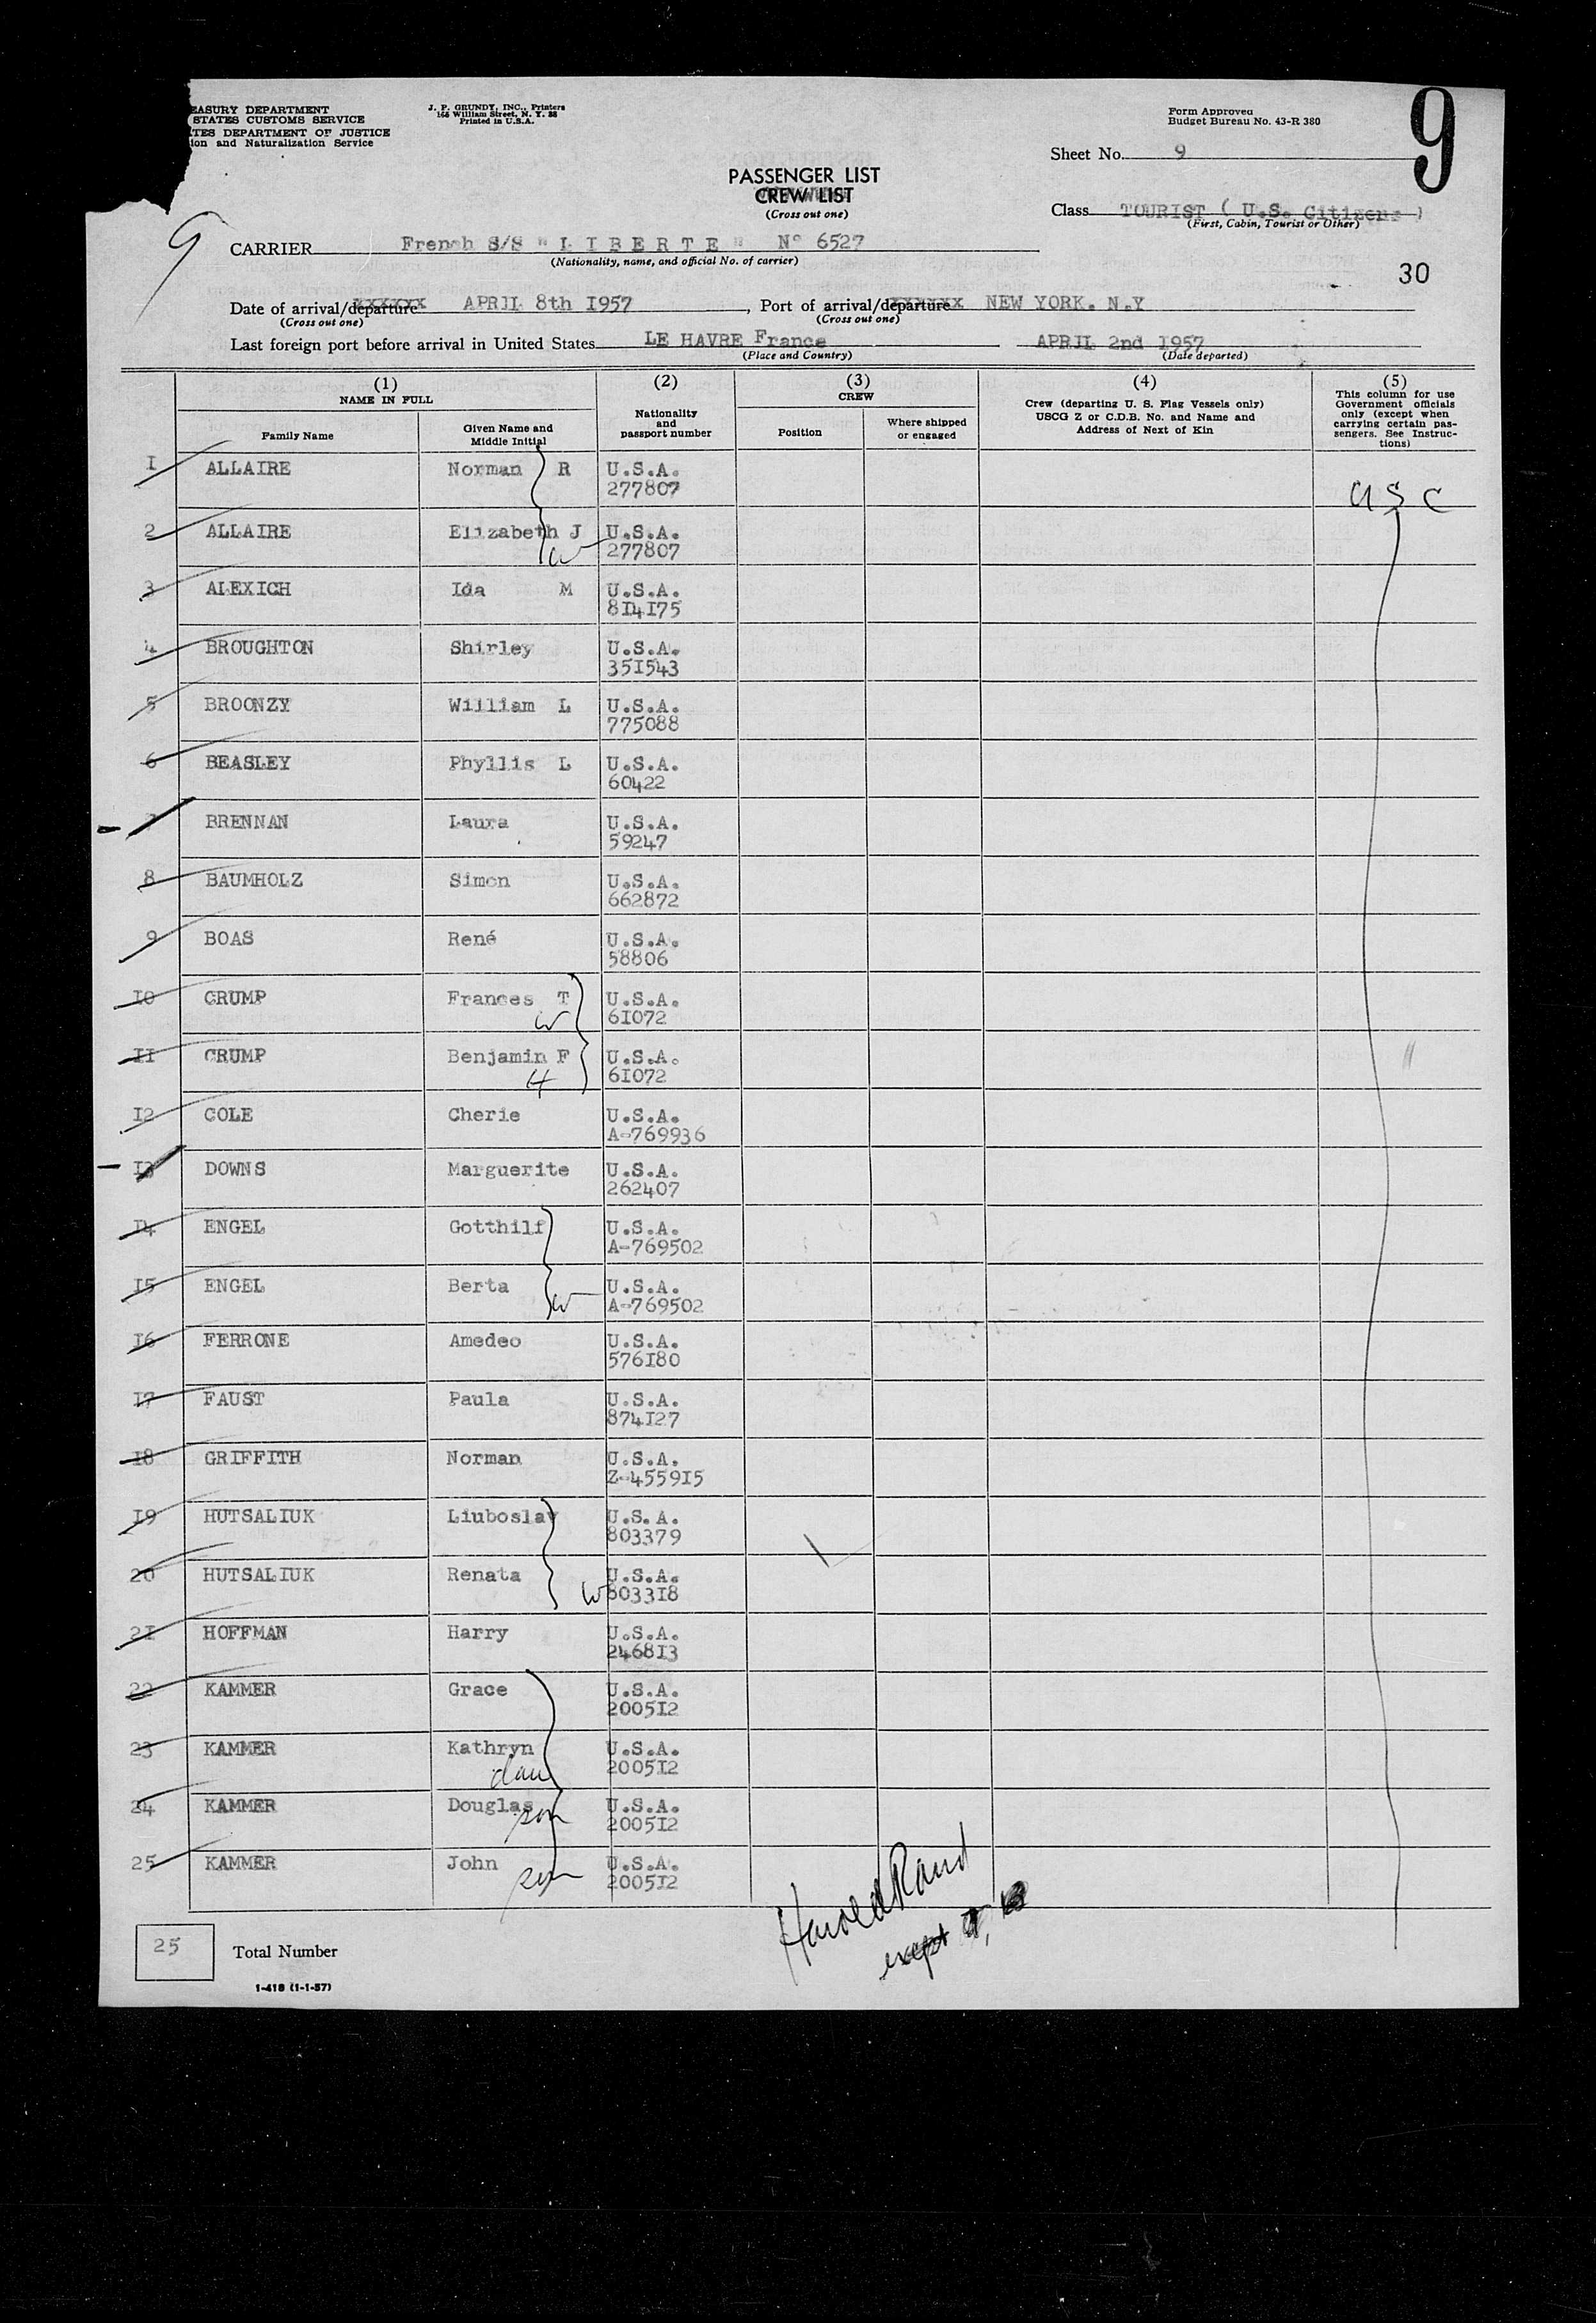 EASURY DEPARTMENT
STATES CUSTOMS SERVICE
TES DEPARTMENT OF JUSTICE
ion and Naturalization Service
J. P. GRUNDY, INC., Printers
Printed in U.S.A.
Form Approved
Budget Bureau No. 43-R 380
9
Sheet No. 9
PASSENGER LIST
CREW LIST
(Cross out one)
Class TOURIST ( U.S. Citizens )
(First, Cabin, Tourist or Other)
9
CARRIER French S/S " L I B E R T E " N° 6527
(Nationality, name, and official No. of carrier)
30
Date of arrival/departure APRIL 8th I957, Port of arrival/departure NEW YORK. N.Y
(Cross out one) (Cross out one)
Last foreign port before arrival in United States LE HAVRE France APRIL 2nd 1957
(Place and Country) (Date departed)
(1) NAME IN FULL
Family Name
Given Name and Middle Initial
(2) Nationality and passport number
(3) CREW
Position
Where shipped or engaged
(4) Crew (departing U. S. Flag Vessels only) USCG Z or C.D.B. No. and Name and Address of Next of Kin
(5) This column for use Government officials only (except when carrying certain passengers. See Instructions)
I ALLAIRE Norman R U.S.A. 277807 USC
2 ALLAIRE Elizabeth J W U.S.A. 277807
3 ALEXICH Ida M U.S.A. 8I4I75
4 BROUGHTON Shirley U.S.A. 35I543
5 BROONZY William L U.S.A. 775088
6 BEASLEY Phyllis L U.S.A. 60422
7 BRENNAN Laura U.S.A. 59247
8 BAUMHOLZ Simon U.S.A. 662872
9 BOAS René U.S.A. 58806
I0 CRUMP Frances T W U.S.A. 6I072
II CRUMP Benjamin F H U.S.A. 6I072
I2 COLE Cherie U.S.A. A-769936
I3 DOWNS Marguerite U.S.A. 262407
I4 ENGEL Gotthilf U.S.A. A-769502
I5 ENGEL Berta W U.S.A. A-769502
I6 FERRONE Amedeo U.S.A. 576I80
I7 FAUST Paula U.S.A. 874I27
I8 GRIFFITH Norman U.S.A. Z-4559I5
I9 HUTSALIUK Liuboslav U.S.A. 803379
20 HUTSALIUK Renata W U.S.A. 8033I8
2I HOFFMAN Harry U.S.A. 2468I3
22 KAMMER Grace U.S.A. 2005I2
23 KAMMER Kathryn dau U.S.A. 2005I2
24 KAMMER Douglas son U.S.A. 2005I2
25 KAMMER John son U.S.A. 2005I2
Harold Rand
except
25 Total Number
1-418 (1-1-57)